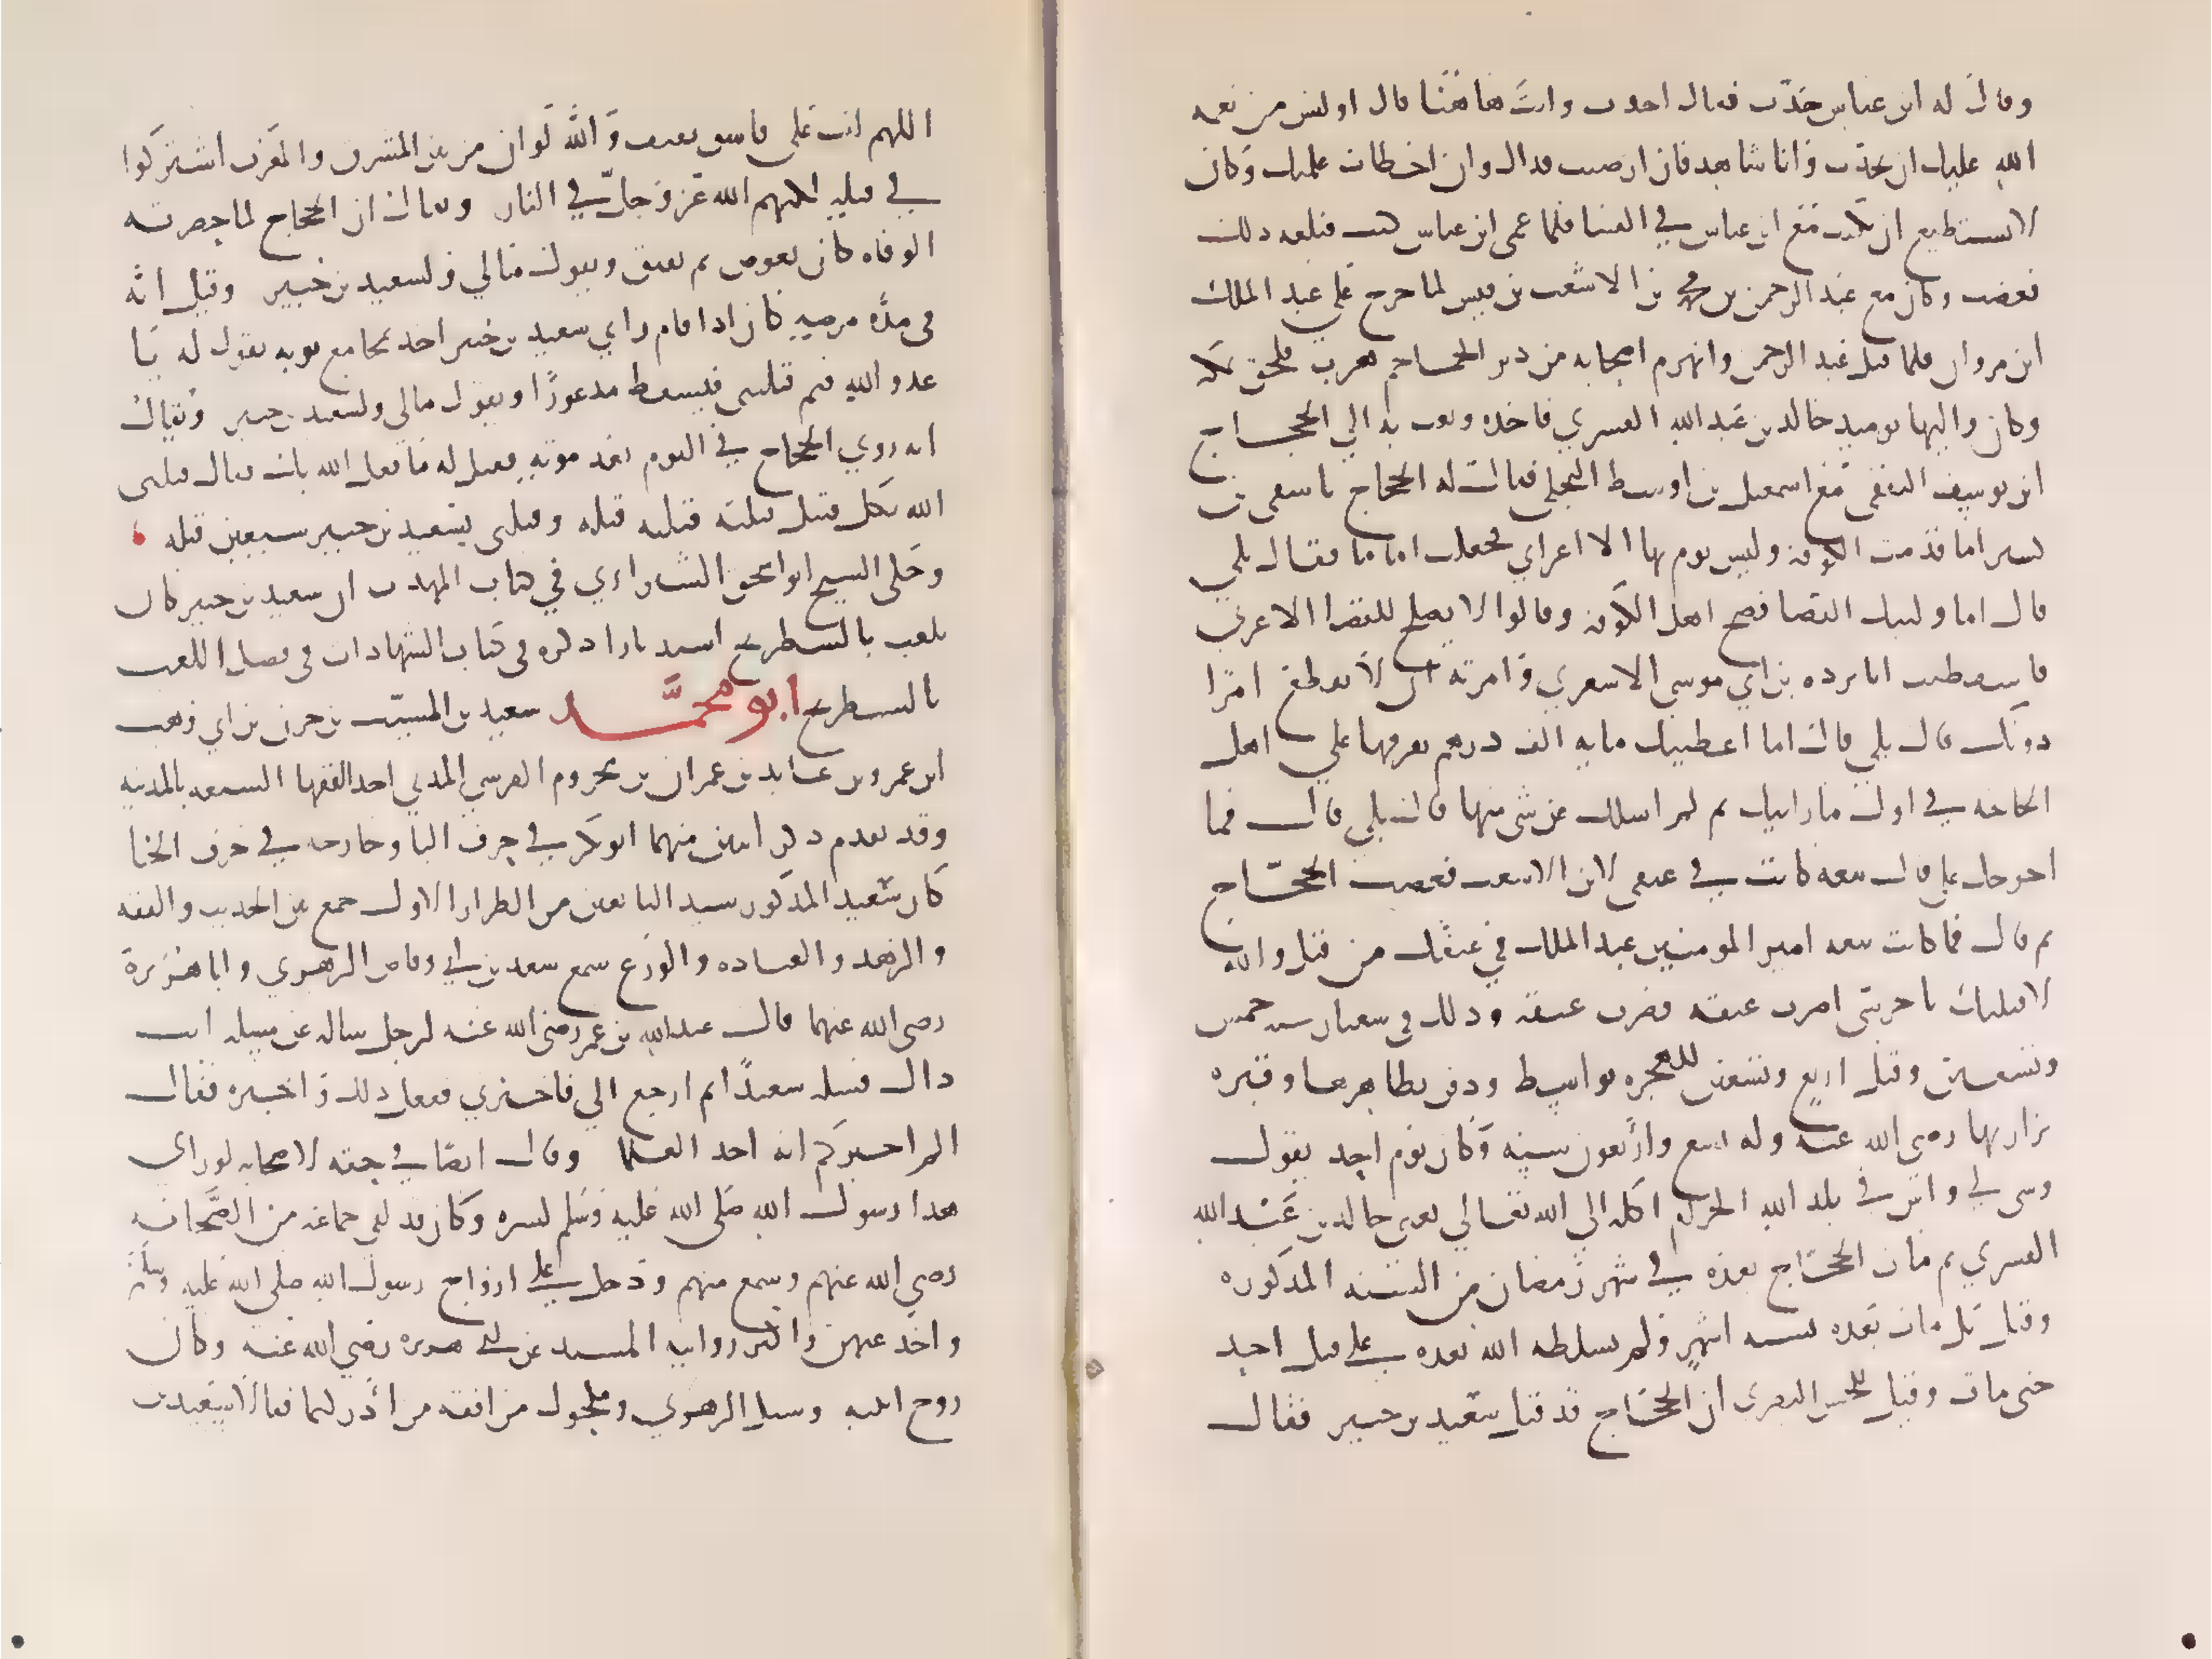 وقال له ابن عباس حدّث فقال احدث وانت هاهنا قال اوليس من نعمه
الله عليك ان تحدّث وانا شاهد فان اصبت فذاك وان اخطات علمتك وكان
لا يستطيع ان يكتب مع ابن عباس في الفتيا فلما عمى ابن عباس كتب فبلغه ذلك
فغضب وكان مع عبد الرحمن بن محمد بن الاشعث بن قيس لما خرج على عبد الملك
ابن مروان فلما قتل عبد الرحمن وانهزم اصحابه من دير الجماجم هرب فلحق بمكه
وكان واليها يوميد خالد بن عبد الله القسري فاخده وبعث به الي الحجاج
ابن يوسف الثقفي مع اسمعيل بن اوسط البجلي فقال له الحجاج يا شقى بن
كسير اما قدمت الكوفه وليس يوم بها الا اعرابي فجعلتك اماما فقال بلي
قال اما وليتك القضا فضج اهل الكوفه وقالوا لا يصلح للقضا الا عربي
فاستقضيت ابا برده بن ابي موسى الاشعري وامرته ان لا يقطع امرا
دونك قال بلي قال اما اعطيتك مايه الف درهم تفرقها علي اهل
الحاجه في اول ما رايتك ثم لم اسلك عن شي منها قال بلي قال فما
اخرجك علي قال بيعه كانت في عنقى لابن الاشعث فغضب الحجاج
ثم قال فما كانت بيعه امير المومنين عبد الملك في عنقك من قبل والله
لاقتلنك يا حرسى اضرب عنقه فضرب عنقه ودلك في شعبان سنه خمس
وتسعين وقيل اربع وتسعين للهجره بواسط ودفن بظاهرها وقبره
يزار بها رضى الله عنه وله تسع واربعون سنه وكان يوم اخد يقول
وشى بي واش في بلد الله الحرام اكله الي الله تعالي يعنى خالد بن عبد الله
القسري ثم مات الحجاج بعده في شهر رمضان من السنه المدكوره
وقيل بل مات بعده بسته اشهر ولم يسلطه الله بعده على قتل احد
حتى مات وقيل للحسن البصرى ان الحجاج قد قتل سعيد بن جبير فقال
اللهم ايت على فاسق ثقيف والله لو ان من بين المشرق والمغرب اشتركوا
في قتله لكبهم الله عز وجل في النار ويقال ان الحجاج لما حضرته
الوفاه كان يغوص ثم يفيق ويقول مالي ولسعيد بن جبير وقيل انه
في مدة مرضه كان ادا نام راي سعيد بن جبير اخد بمجامع ثوبه يقول له يا
عدو الله فيم قتلتنى فيستيقظ مدعورًا ويقول مالى ولسعيد بن جبير ويقال
انه روي الحجاج في النوم بعد موته فقيل له ما فعل الله بك فقال قتلنى
الله بكل قتيل قتلته قتله وقتلنى بسعيد بن جبير سبعين قتله
وحكى الشيخ ابو اسحق الشيرازي في كتاب المهدب ان سعيد بن جبير كان
يلعب بالشطرنج استدبارا دكره في كتاب الشهادات في فصل اللعب
بالشطرنج ابو محمَّد سعيد بن المسيّب بن حزن بن ابي وهب
ابن عمرو بن عايد بن عمران بن مخزوم القرشي المدني احد الفقها السبعه بالمدينه
وقد تقدم دكر اثنين منهما ابو بكر في حرف البا وخارجه في حرف الخا
كان سعيد المدكور سيد التابعين من الطراز الاول جمع بين الحديث والفقه
والزهد والعباده والورع سمع سعد بن ابي وقاص الزهري وابا هريرة
رضى الله عنهما قال عبد الله بن عمر رضى الله عنه لرجل ساله عن مسيله ايت
داك فسله يعنى سعيدًا ثم ارجع الي فاخبرني ففعل دلك واخبره فقال
الم اخبركم انه احد العلما وقال ايضًا في حقه لاصحابه لو راى
هدا رسول الله صلى الله عليه وسلم لسره وكان قد لقي جماعه من الصَّحابه
رضي الله عنهم وسمع منهم ودخل علي ازواج رسول الله صلى الله عليه وسلم
واخد عنهن واكثر روايته المسند عن ابي هريره رضي الله عنه وكان
زوج ابنته وسيل الزهري ومكحول من افقه من ادركتما فقالا سعيد بن